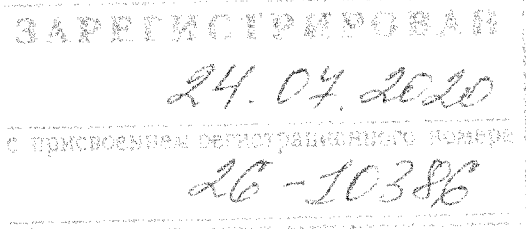 ЗАРЕГИСТРИРОВАН
24.07.2020
с присвоением регистрационного номера
26-10386